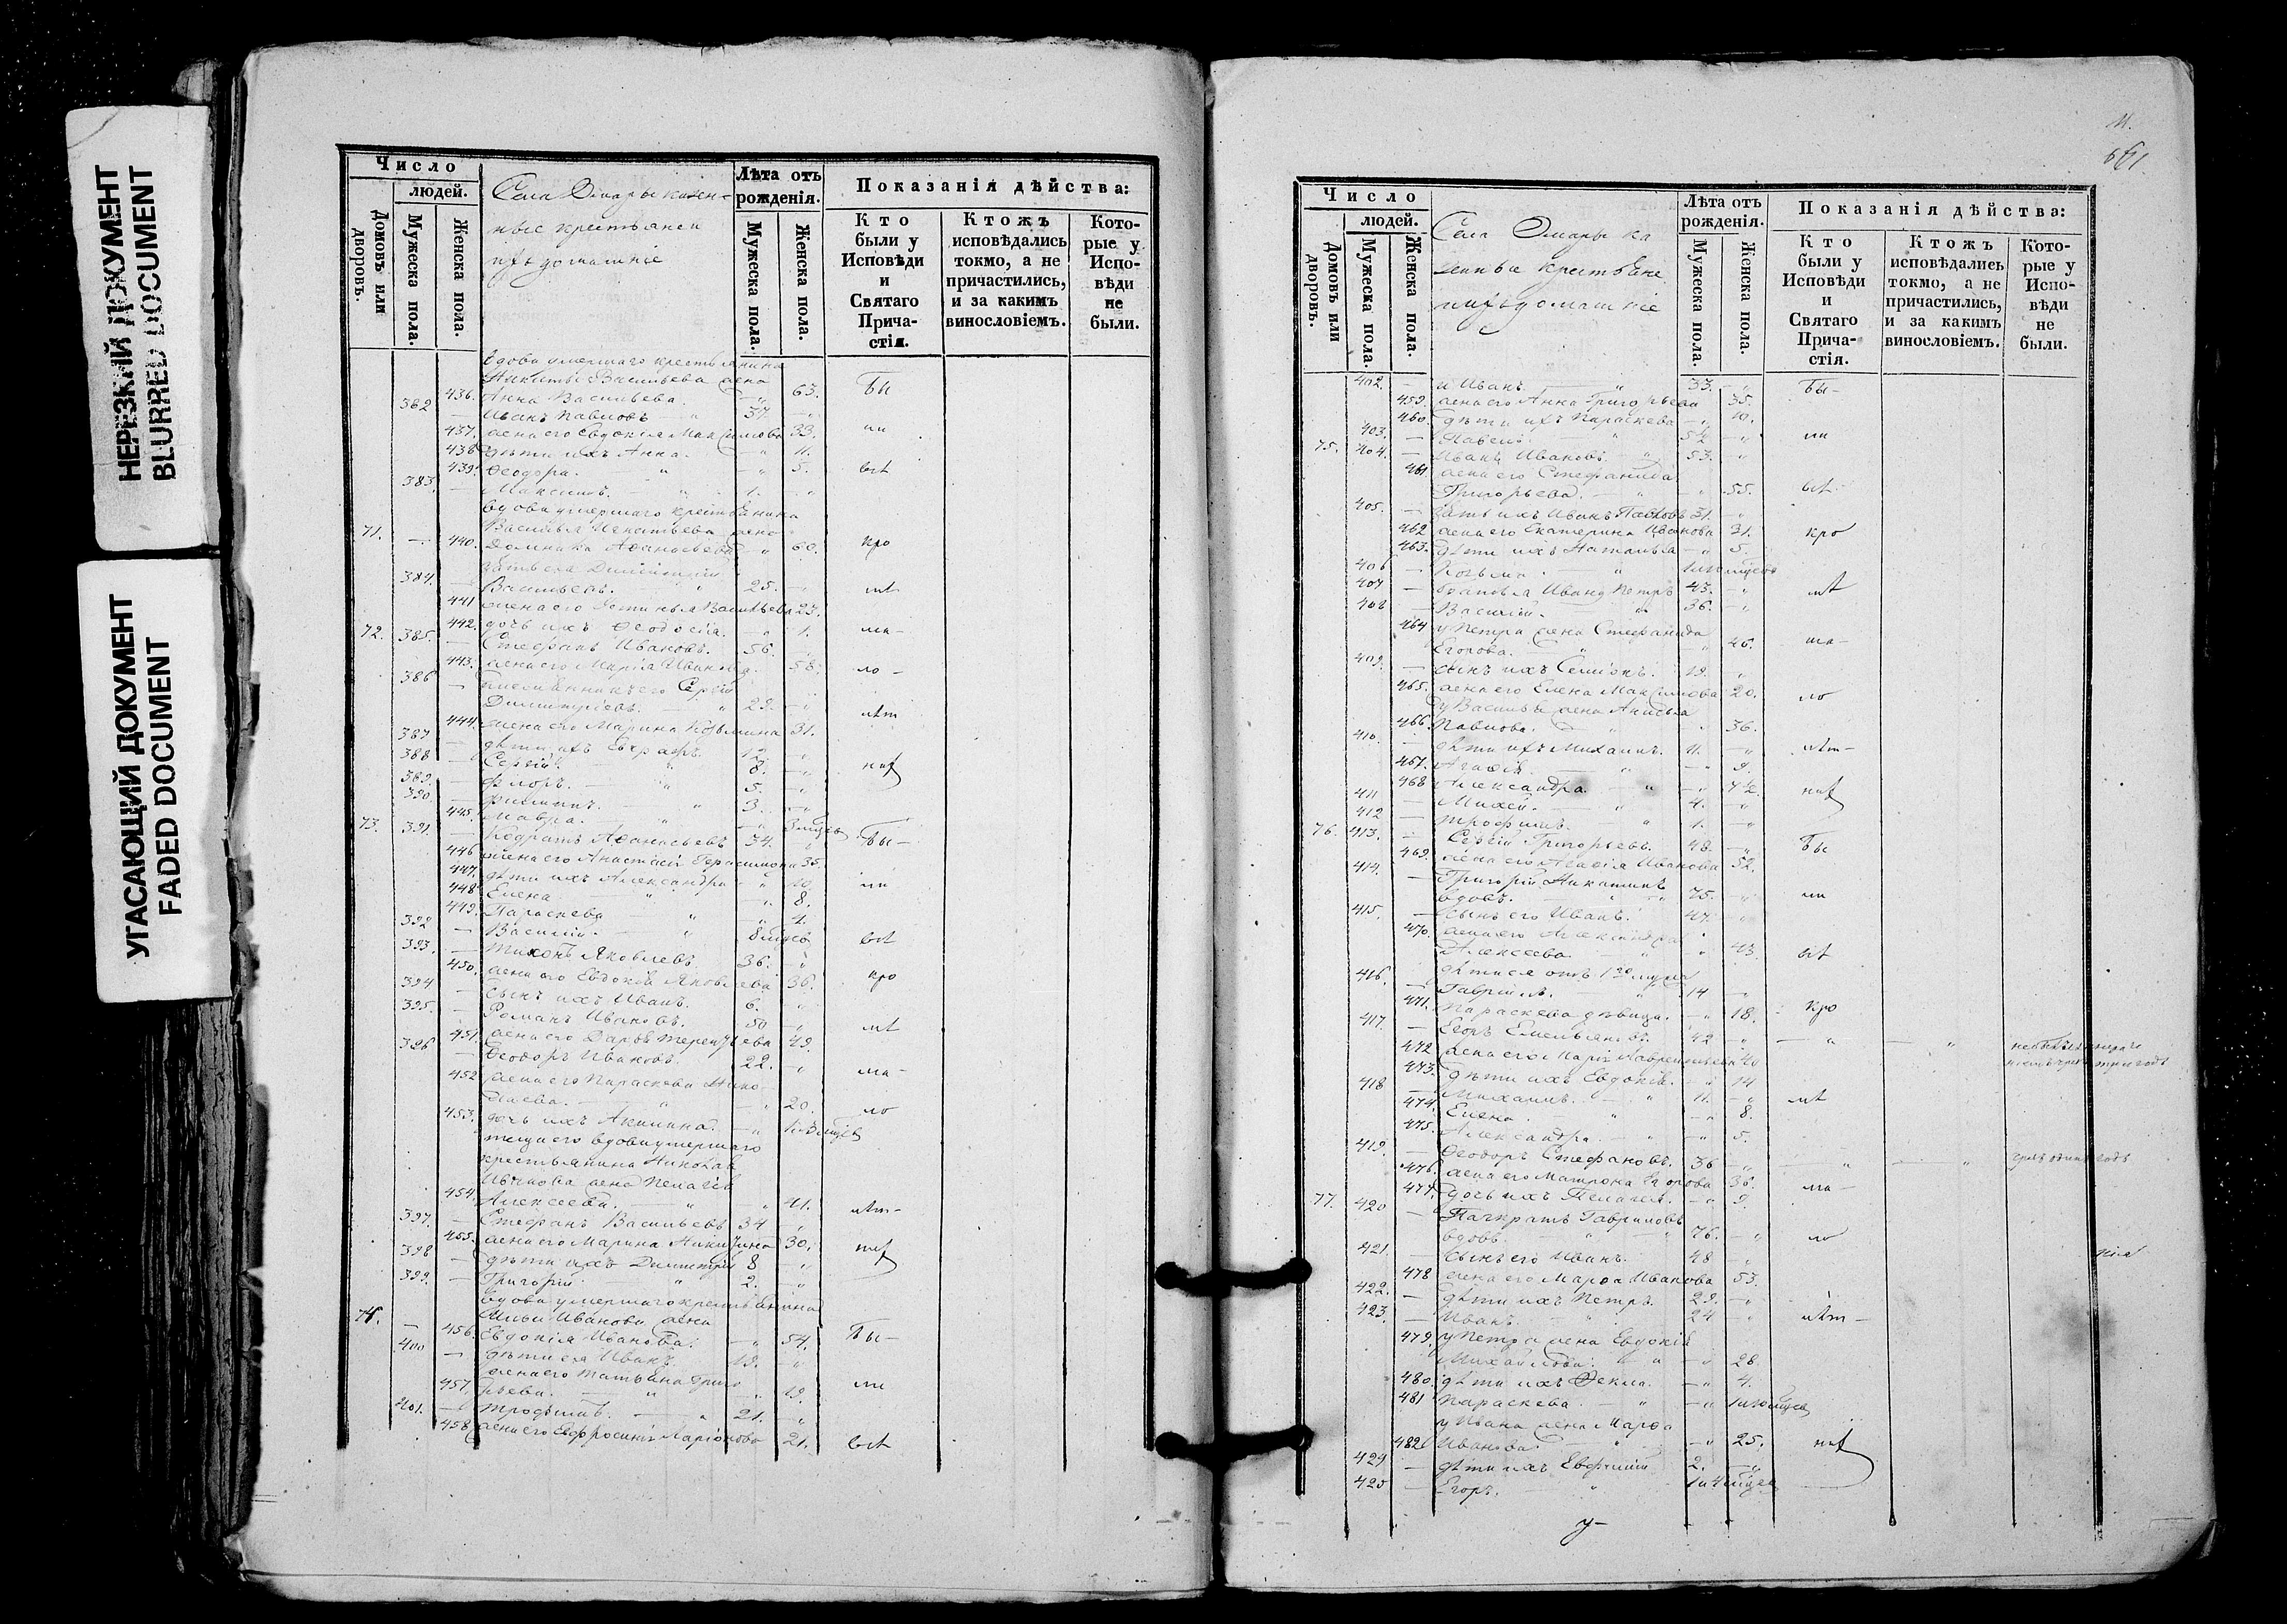 НЕРЕЗКИЙ ДОКУМЕНТ
BLURRED DOCUMENT
УГАСАЮЩИЙ ДОКУМЕНТ
FADED DOCUMENT
Число
людей.
Домовъ или дворовъ.
Мужеска пола.
Женска пола.
Села казен-
ные крестьяне и
ихъ домашніе
Лѣта отъ рожденія.
Мужеска пола.
Женска пола.
Показанія дѣйства:
Кто были у Исповѣди и Святаго Прича-стія.
Ктожъ исповѣдались токмо, а не причастились, и за какимъ винословіемъ.
Кото-рые у Испо-вѣди не были.
вдова умершаго крестьянина
Никиты Васильева жена
436. Анна Васильева. — " 63. Бы
382 — Иванъ Павловъ " 37 — "
437. жена его Евдокія Максимова 33. ли
438 дѣти ихъ Анна. — " 11.
439. Ѳеодора. " — " 5. всѣ
383. — Максимъ. — " 1. — "
вдова умершаго крестьянина
Василья Игнатьева жена
71. — 440. Домника Аѳанасьева — " 60. кро
зять ея Димитрій
384. — Васильевъ. " 25. — мѣ
441 жена его Устинья Васильева 23.
442. дочь ихъ Ѳеодосія. — " 1. ма-
72. 385. — Стефанъ Ивановъ. 56. "
443. жена его Марія Иванова. 58. ло-
386 — племянникъ его Сергій
Димитріевъ. — " 29. — " лѣт
444. жена его Марина Козьмина 31.
387 — дѣти ихъ Евграфъ. 12. "
388 — Сергій. — " 8. — " них
389. — Флоръ. — " 5. — "
390. — Филиппъ. — " 3. — "
445. Мавра. — " — " 3 мѣсяц
73. 391. — Кодратъ Аѳанасьевъ 34. " Бы-
446 жена его Анастасія Герасимова 35.
447. дѣти ихъ Александра — " 10. ли
448 Елена — " — " 8.
449. Параскева — " — " 4.
392 — Василій. — " 8 мѣсяц всѣ
393. — Тихонъ Яковлевъ 36. — "
450. жена его Евдокія Яковлева 36. кро
394 — сынъ ихъ Иванъ. 6. — "
395. — Романъ Ивановъ. 50 — " мѣ
451. жена его Дарья Терентьева 49.
396 — Ѳеодоръ Ивановъ 22. — " ма-
452 жена его Параскева Нико-
лаева. — " — " 20. ло
453. дочь ихъ Акилина. — "
теща его вдова умершаго
крестьянина Николая
Иванова жена Пелагія
454. Алексеева. — " " 41. лѣт-
397. — Стефанъ Васильевъ 34 — "
455. жена его Марина Никитина 30. них
398 — дѣти ихъ Димитрій 8 — "
399. — Григорій " 2. — "
вдова умершаго крестьянина
Ильи Иванова жена
74. — 456. Евдокія Иванова. — " 54. Бы-
400 — дѣти ея Иванъ 19. — "
жена его Татьяна Григо
457. рьева. — " — " 19. ли
401. — Трофимъ. — " 21. — "
458. жена его Евфросинія Ларіонова 21. всѣ
Число
людей.
Домовъ или дворовъ.
Мужеска пола.
Женска пола.
Села ка
зенные крестьяне
и ихъ домашніе
Лѣта отъ рожденія.
Мужеска пола.
Женска пола.
Показанія дѣйства:
Кто были у Исповѣди и Святаго Прича-стія.
Ктожъ исповѣдались токмо, а не причастились, и за какимъ винословіемъ.
Кото-рые у Испо-вѣди не были.
402. — и Иванъ. " 33. — " Бы-
459. жена его Анна Григорьева 35.
460. дѣти ихъ Параскева — " 10.
403. — Павелъ. — " 5½ — " ли
75. 404. — Иванъ Ивановъ. — " 53. — "
461 жена его Стефанида
Григорьева. — " — " 55. всѣ
405. — зять ихъ Иванъ Павловъ 31. — "
462 жена его Екатерина Иванова 31. кро
463. дѣти ихъ Наталья — " 5.
406 — Козьма — "
407 — братья Ивана Петръ 43. — " мѣ
408 — Василій. — " 36. — "
464 у Петра жена Стефанида
Егорова. — " — " 46. ма-
409. — сынъ ихъ Семіонъ. 19. "
465. жена его Елена Максимова 20. ло
у Василья жена Анисья
466 Павлова. — " 36.
410. — дѣти ихъ Михаилъ. 11. — " лѣт-
467. Агаѳія. — " — " 9.
468 Александра. — " — " 7½. них
411 — Михей. — " 4. — "
412 — Трофимъ. — " 1. — "
76. 413. — Сергій Григорьевъ. 48. — " Бы
469. жена его Агаѳія Иванова 52.
414. — Григорій Никитинъ
вдовъ. — " 75. — " ли
415. — сынъ его Иванъ. 47. "
470. жена его Александра
Алексеева. — " " 43. всѣ
416. дѣти ея отъ 1го мужа
— Гавріилъ. — " 14 — "
471. Параскева дѣвица. — " 18. кро
417. — Егоръ Емельяновъ. 42 — " — " — "
472 жена его Марія Лаврентьева 40
473. дѣти ихъ Евдокія. — " 14
418 — Михаилъ. — " 11. — " мѣ
474. Елена. — " — " 8.
475. Александра. — " — " 5.
419. — Ѳеодоръ Стефановъ. 36 — " — " — "
476. жена его Матрона Егорова 36. ма-
477. дочь ихъ Пелагея. — " 9.
77. 420 — Панкратъ Гавриловъ
вдовъ. — " — " 76. — " ло
421. — сынъ его Иванъ. 48 "
478 жена его Марѳа Иванова 53.
422. — дѣти ихъ Петръ. 29. — "
423. — Иванъ. — " 24 — " лѣт-
479. у Петра жена Евдокія
Михайлова. " — " 28
480. дѣти ихъ Ѳекла. — " 4.
481 Параскева. — " — "
у Ивана жена Марѳа
482 Иванова. — " 25. них
424 — дѣти ихъ Евфимій 2. — "
425 — Егоръ. — "